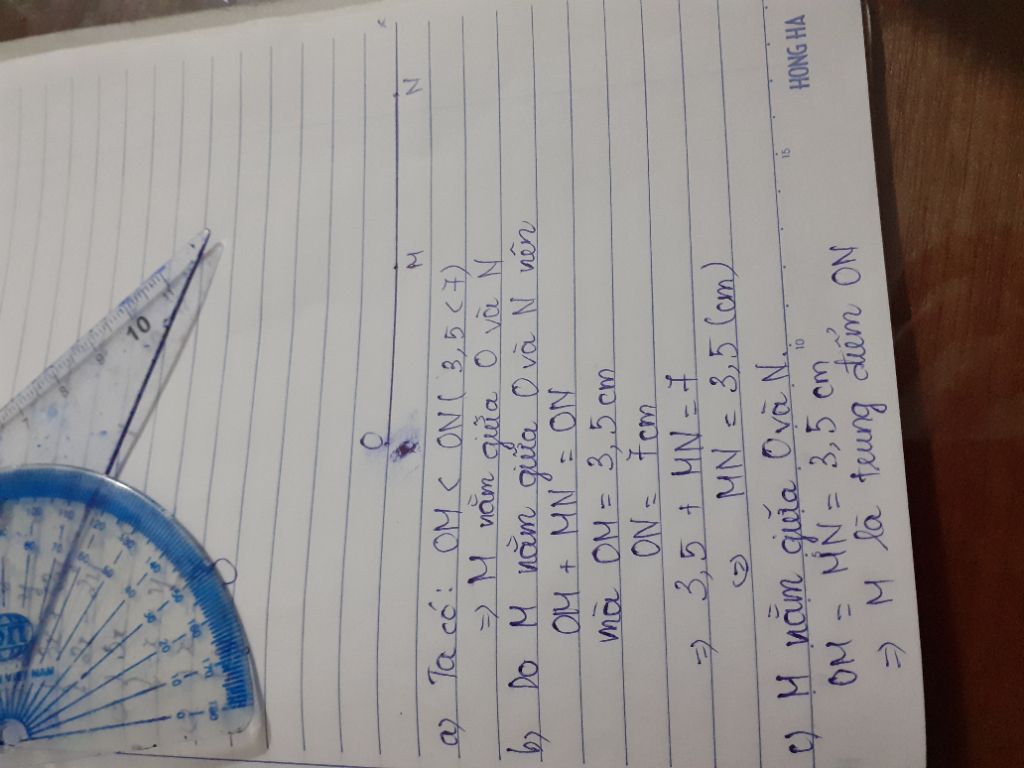 O
M
N
x
a) Ta có: OM < ON (3,5 < 7)
=> M nằm giữa O và N
b) Do M nằm giữa O và N nên
OM + MN = ON
mà OM = 3,5 cm
ON = 7 cm
=> 3,5 + MN = 7
MN = 3,5 (cm)
c) M nằm giữa O và N.
OM = MN = 3,5 cm
=> M là trung điểm ON
10
15
HONG HA
10